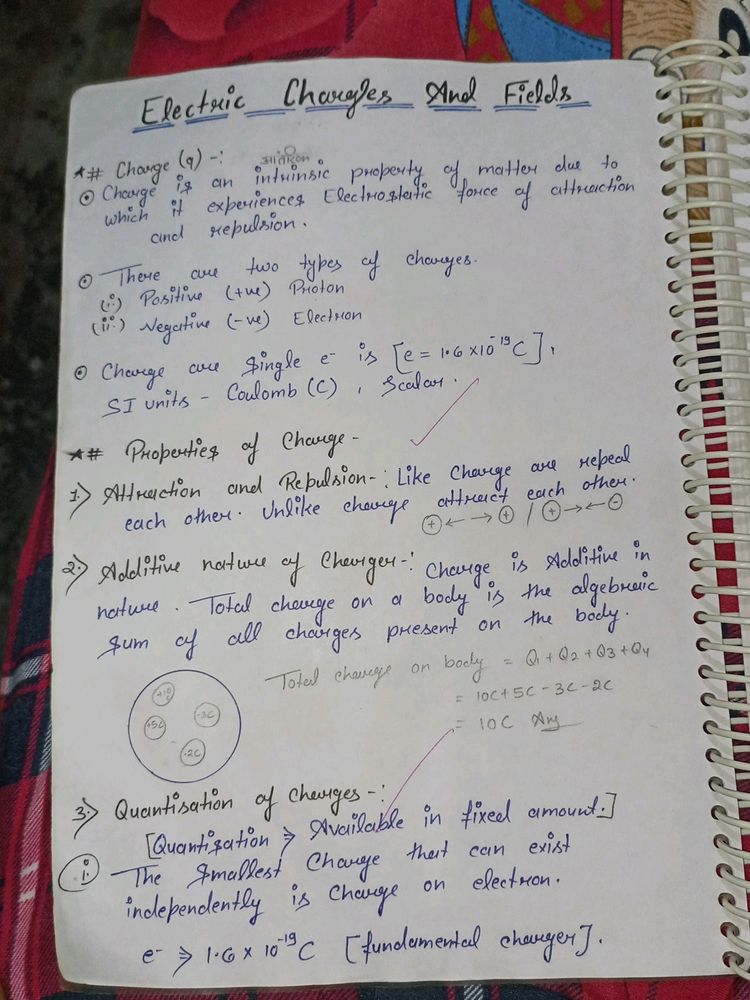 Electric Charges And Fields
★# Charge (q) -:
आंतरिक
⊙ Charge is an intrinsic property of matter due to
which it experiences Electrostatic force of attraction
and repulsion.
⊙ There are two types of charges.
(i.) Positive (+ve) Proton
(ii.) Negative (-ve) Electron
⊙ Charge are single e⁻ is [e = 1.6 × 10⁻¹⁹ C].
SI units - Coulomb (C), Scalar.
★# Properties of Charge -
1.> Attraction and Repulsion -: Like Charge are repeal
each other. Unlike charge attract each other.
⊕ ← → ⊕ / ⊕ → ← ⊖
2.> Additive nature of Charger -: Charge is Additive in
nature. Total charge on a body is the algebraic
sum of all charges present on the body.
Total charge on body = Q1 + Q2 + Q3 + Q4
= 10C + 5C - 3C - 2C
= 10C Ans
+5C
-3C
-2C
3.> Quantisation of Charges -:
[Quantisation ⇒ Available in fixed amount.]
i. The Smallest Charge that can exist
independently is Charge on electron.
e⁻ ⇒ 1.6 × 10⁻¹⁹ C [fundamental charger].